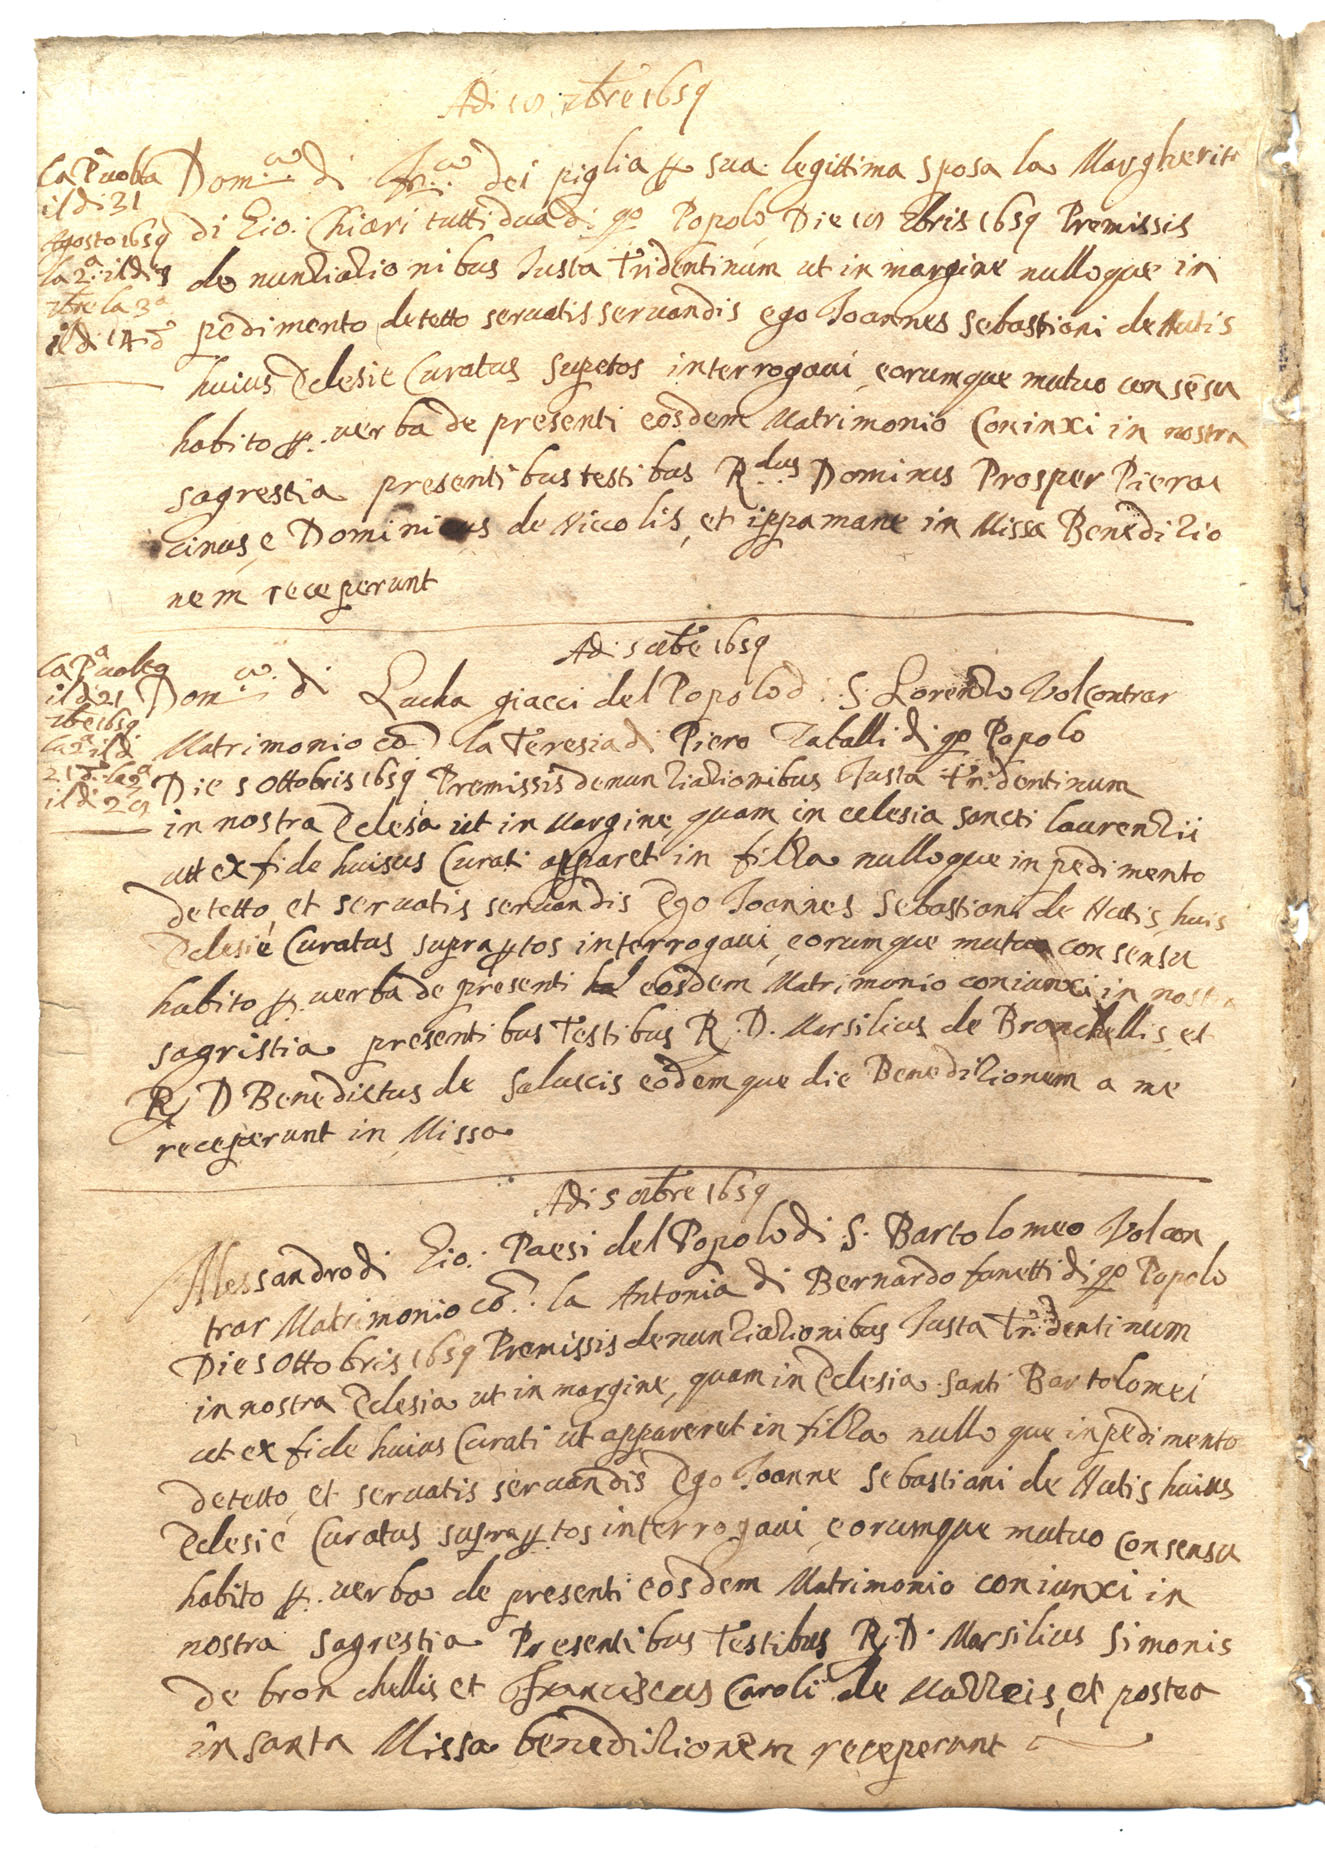 Adi 15 7bre 1659
La Pa volta
il di 31
Agosto 1659
la 2a il di 7
7bre la 3a
il di 14 d
Dom.ca di Fr.co dei piglia p sua legittima sposa la Margherita
di Gio: Chiari tutti dua di qo Popolo Die 15 7bris 1659 Premissis
denuntiationibus Iusta Tridentinum ut in margine nulloque in
pedimento detetto servatis servandis ego Joannes Sebastiani de Nutis
huius Eclesie Curatus supetos interrogavi, eorumque mutuo consēsu
habito p. verba de presenti eosdem Matrimonio Coninxi in nostra
sagrestia presentibus testibus R.dus Dominus Prosper Piera
cinus, e Dominicus de Niccolis, et ippa mane in Missa Benedizio
nem receperunt
Adi 5 otbre 1659
La Pa volta
il di 21
7bre 1659
la 2a il di
21 d. la 3a
il di 29
Dom.co di Lucha giacci del Popolo d. S. Lorenzo Vol contrar
Matrimonio cō la Teresia di Piero Tatalli di qo Popolo
Die 5 Ottobris 1659 Premissis denuntiationibus Iusta Tridentinum
in nostra Eclesia ut in Margine quam in eclesia sancti laurenzii
ut ex fide huisus Curati apparet in filza nulloque inpedimento
detetto, et servatis servandis Ego Joannes Sebastiani de Nutis huis
Eclesie Curatus suprapptos interrogavi, eorumque mutuo consensu
habito p. verba de presenti eosdem Matrimonio coniunxi in nostra
sagristia presentibus Testibus R. D. Marsilius de Bronchellis, et
R. D Benedictus de Saluscis eodemque die Benedizionem a me
receperunt in Missa
Adi 5 otbre 1659
Alessandro di Gio: Paesi del Popolo di S. Bartolomeo Vol con
trar Matrimonio cō. la Antonia di Bernardo fanetti di qo Popolo
Die 5 Ottobris 1659 Premissis denuntiationibus Iusta Tridentinum
in nostra Eclesia ut in margine, quam in Eclesia santi Bartolomei
ut ex fide huius Curati ut appareret in filza nulloque inpedimento
detetto, et servatis servandis Ego Joanne Sebastiani de Nutis huius
Eclesie Curatus suprapptos interrogavi, eorumque mutuo Consensu
habito p. verba de presenti eosdem Matrimonio coniunxi in
nostra sagrestia Presentibus Testibus R. D. Marsilius Simonis
de bronchellis et Franciscus Caroli de Mazzeis, et postea
in santa Missa benedizionem receperunt